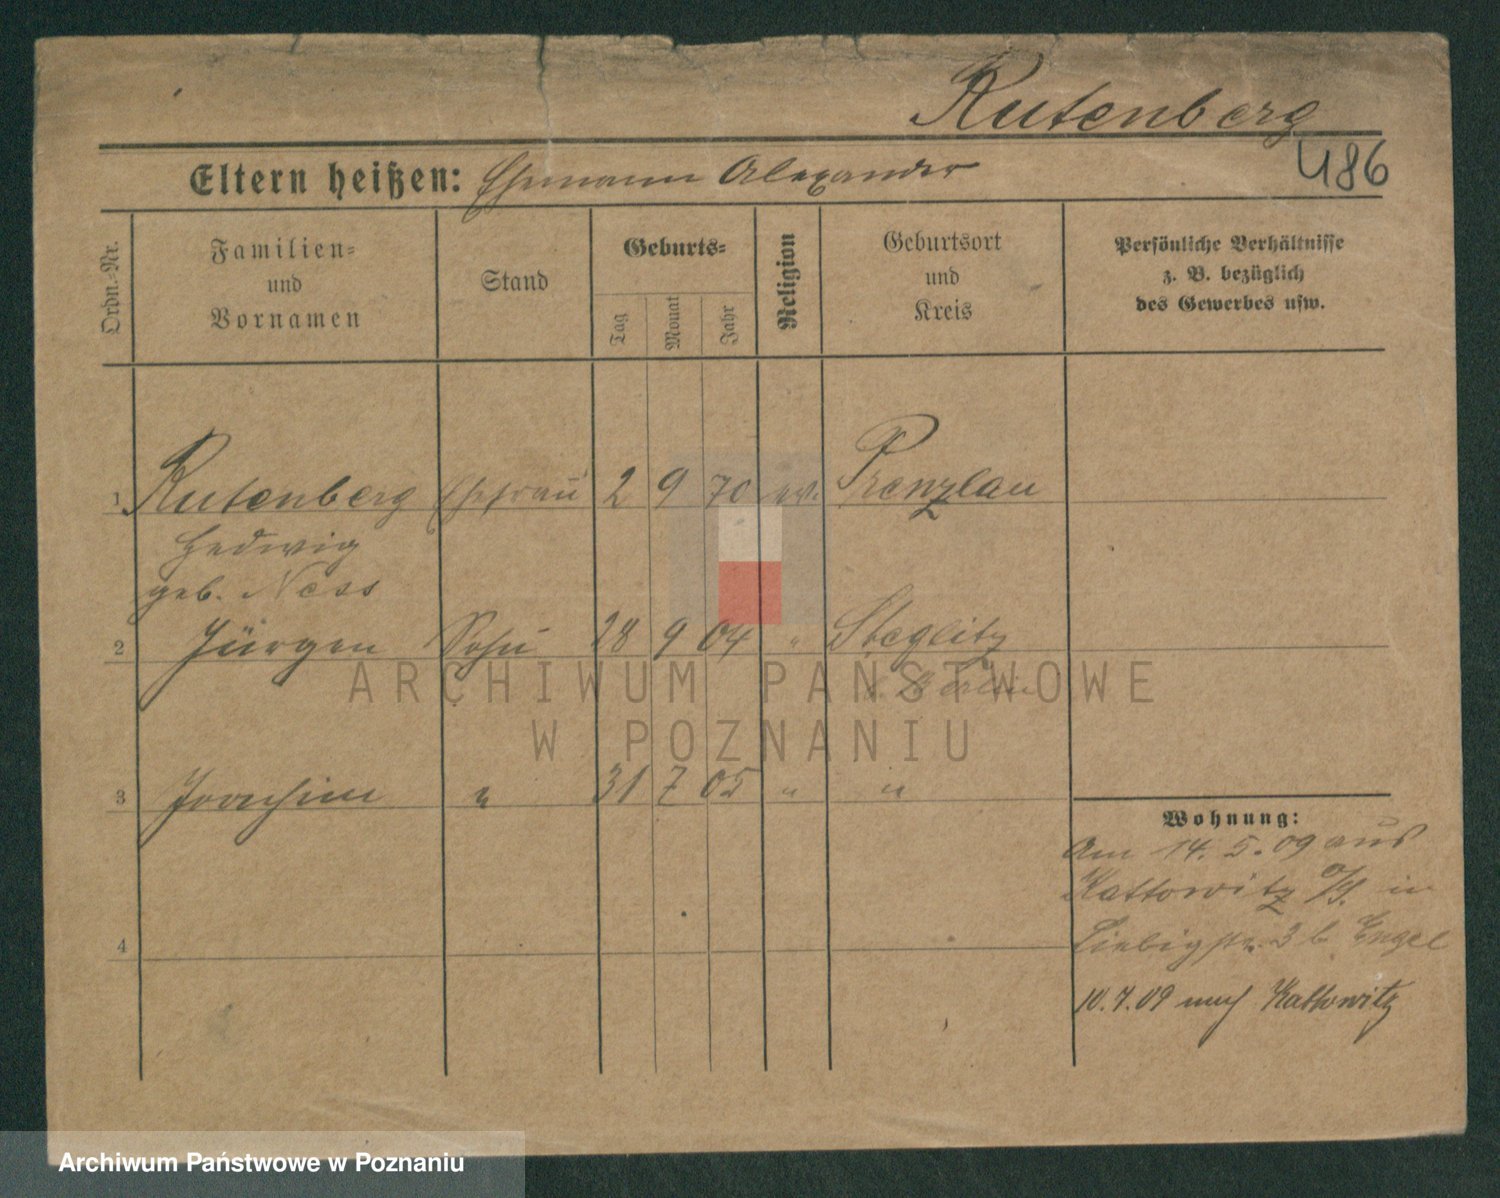 Rutenberg
486
Eltern heißen: Ehemann Alexander
Ordn.-Nr.
Familien-
und
Vornamen
Stand
Geburts-
Tag
Monat
Jahr
Religion
Geburtsort
und
Kreis
Persönliche Verhältnisse
z. B. bezüglich
des Gewerbes usw.
1 Rutenberg Ehefrau 2 9 70 ev. Prenzlau
Hedwig
geb. Ness
2 Jürgen Sohn 28 9 04 " Steglitz
b. Berlin
ARCHIWUM PAŃSTWOWE
W POZNANIU
3 Joachim " 31 7 05 " "
4
Wohnung:
Am 14. 5. 09 aus
Kattowitz O/S. in
Liebigstr. 3 b. Engel
10.7.09 nach Kattowitz
Archiwum Państwowe w Poznaniu